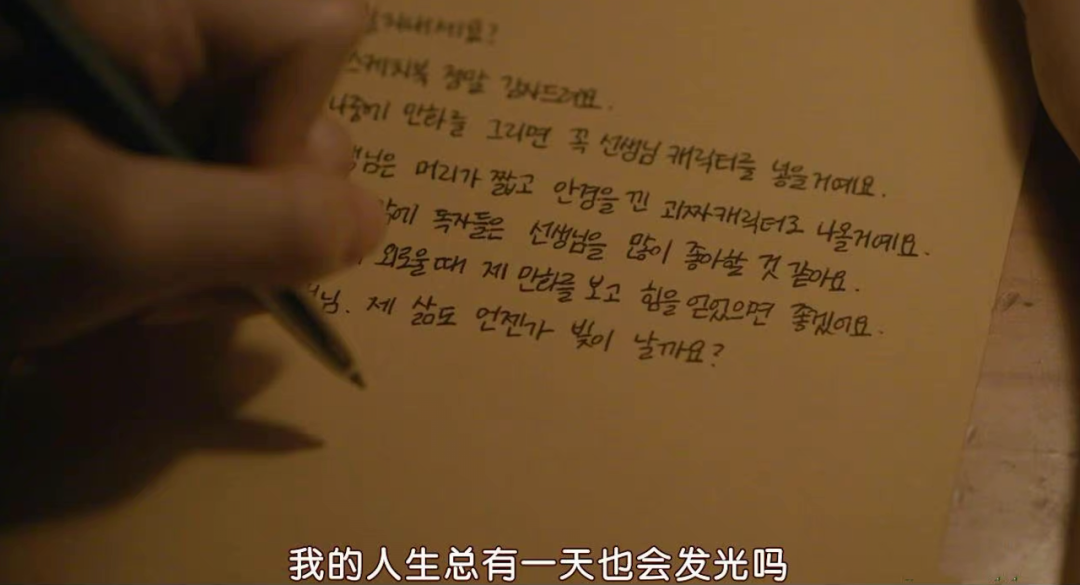 스케치북 정말 감사드려요.
나중에 만화를 그리면 꼭 선생님 캐릭터를 넣을거예요.
머리가 짧고 안경을 낀 괴짜캐릭터로 나올거예요.
독자들은 선생님을 많이 좋아할 것 같아요.
외로울때 제 만화를 보고 힘을 얻었으면 좋겠어요.
제 삶도 언젠가 빛이 날까요?
我的人生总有一天也会发光吗